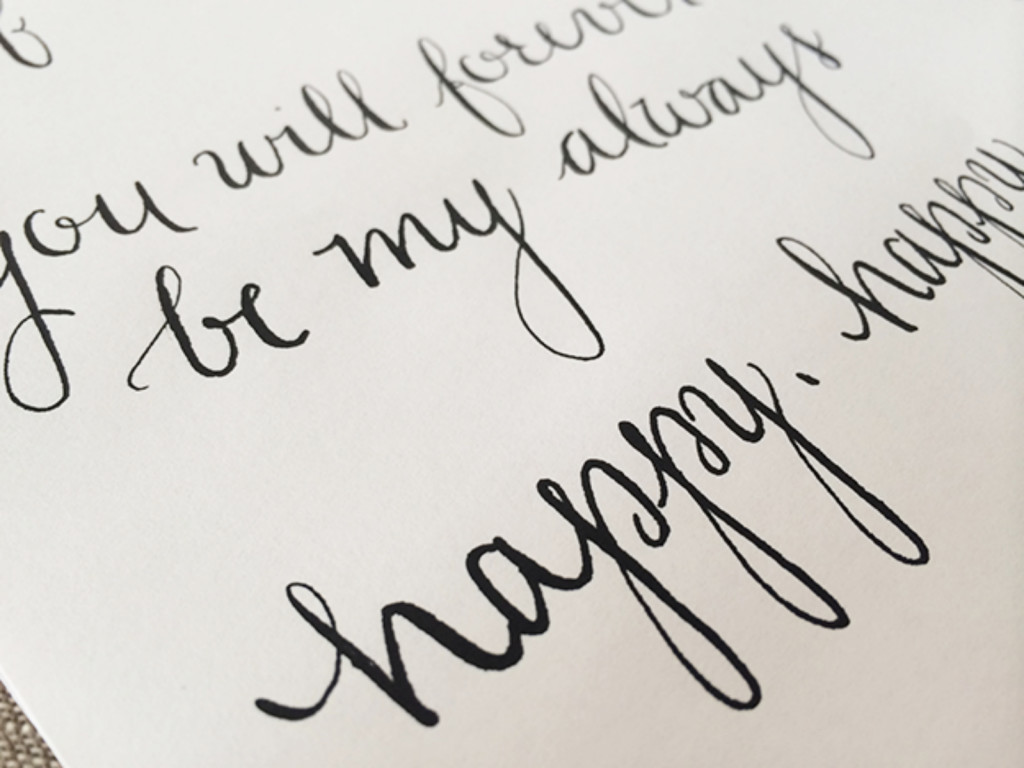 you will forever
be my always
happy. happy